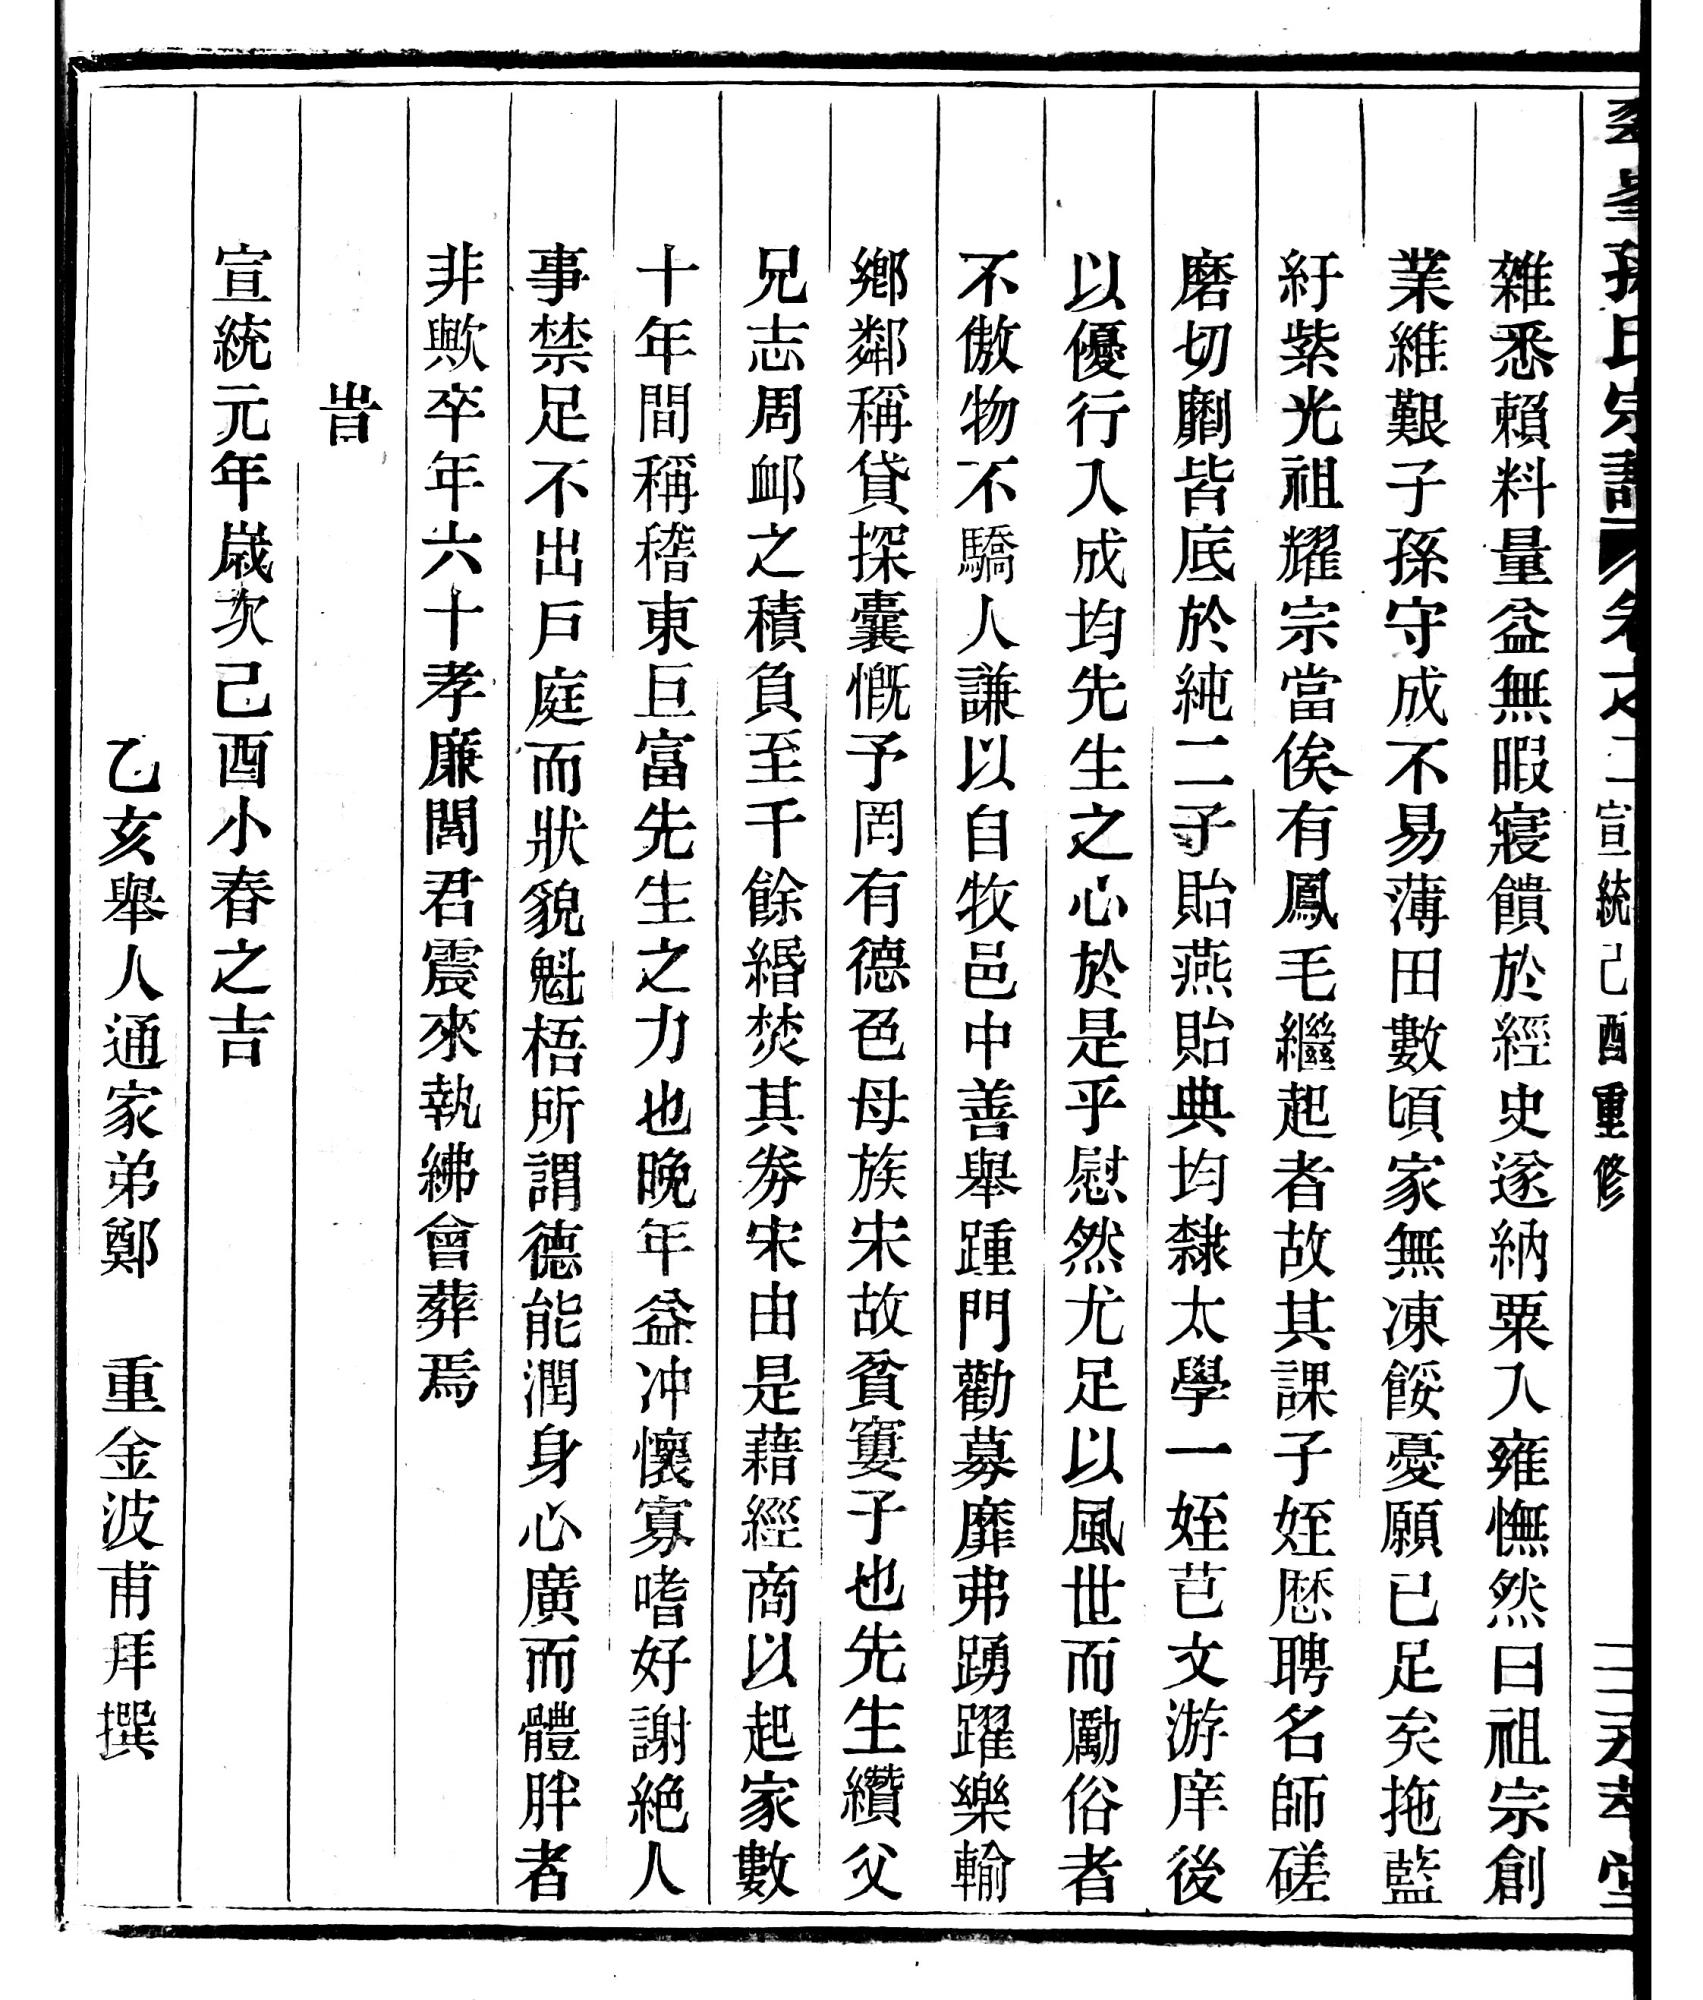 孫氏宗譜 卷之二 宣統己酉重修 二 永孝堂
雜悉賴料量益無暇寢饋於經史遂納粟入雍憮然曰祖宗創
業維艱子孫守成不易薄田數頃家無凍餒憂願已足矣拖藍
紆紫光祖耀宗當俟有鳳毛繼起者故其課子姪歷聘名師磋
磨切劘皆底於純二子貽燕貽典均隸太學一姪芑文游庠後
以優行入成均先生之心於是乎慰然尤足以風世而勵俗者
不傲物不驕人謙以自牧邑中善舉踵門勸募靡弗踴躍樂輸
鄉鄰稱貸探囊慨予罔有德色母族宋故貧窶子也先生纘父
兄志周卹之積負至千餘緡焚其券宋由是藉經商以起家數
十年間稱稽東巨富先生之力也晚年益冲懷寡嗜好謝絶人
事禁足不出戶庭而狀貌魁梧所謂德能潤身心廣而體胖者
非歟卒年六十孝廉閻君震來執紼會葬焉
旹
宣統元年歲次己酉小春之吉
乙亥舉人通家弟鄭 重金波甫拜撰